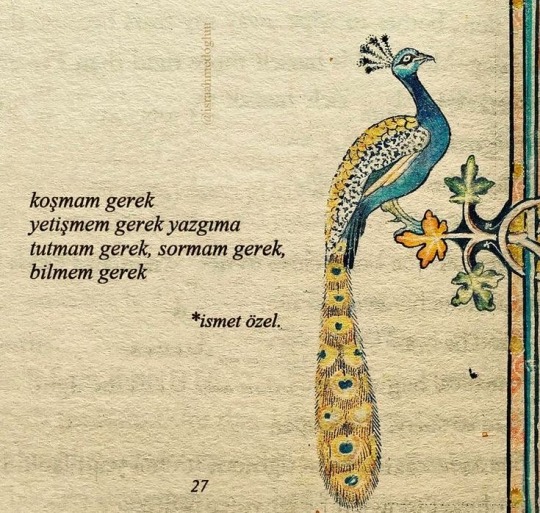 koşmam gerek
yetişmem gerek yazgıma
tutmam gerek, sormam gerek,
bilmem gerek
*ismet özel.
27